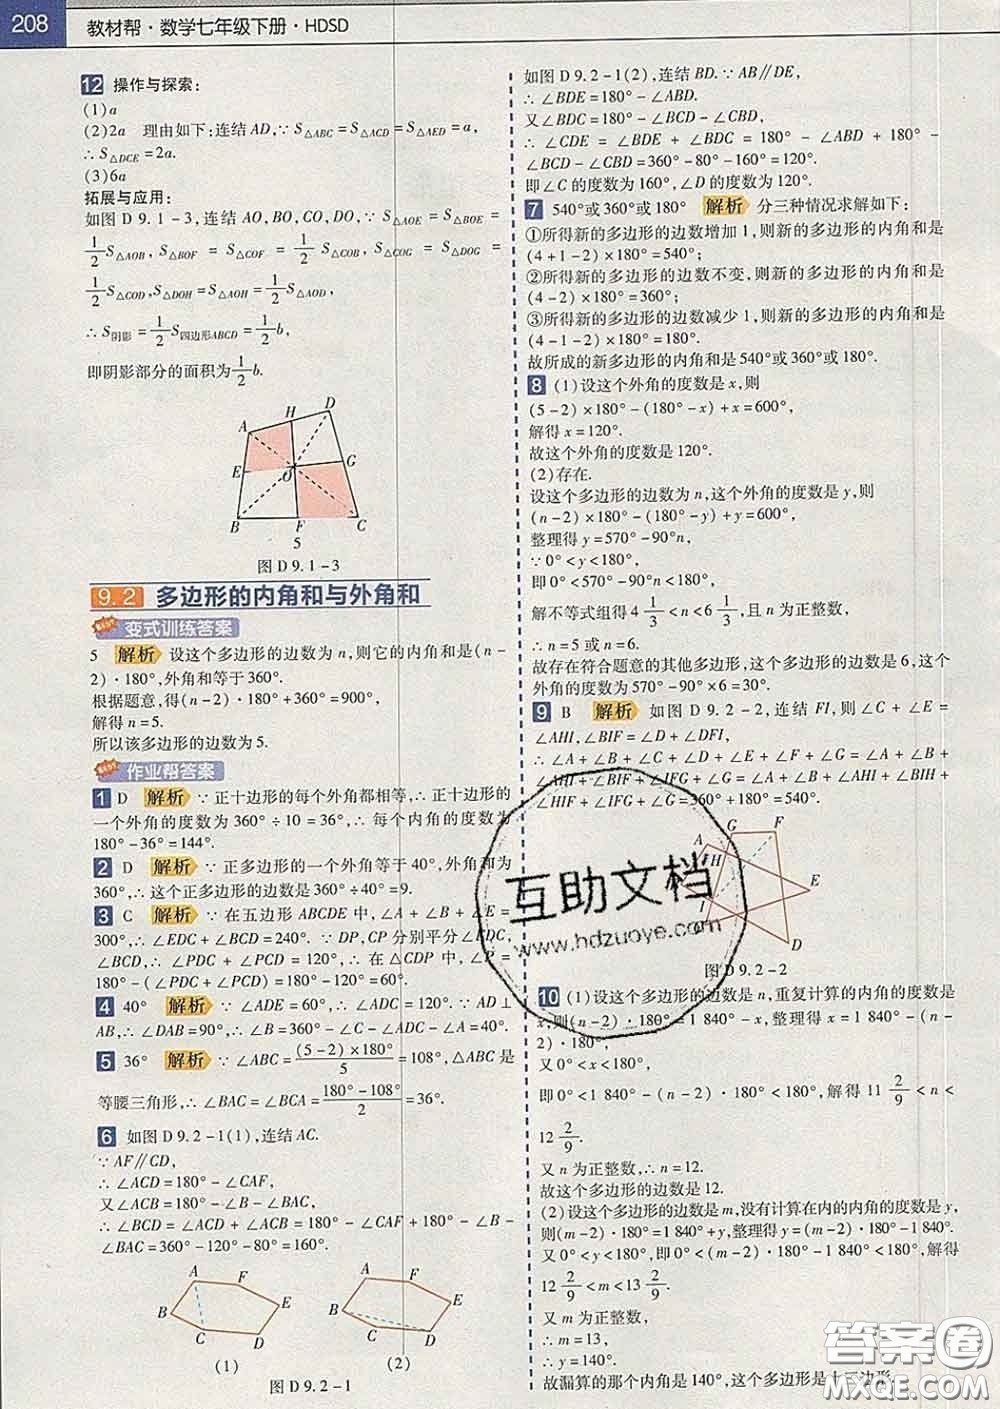 208 教材帮·数学七年级下册·HDSD
12 操作与探索:
(1)a
(2)2a 理由如下:连结AD,∵S△ABC=S△ACD=S△AED=a,
∴S△DCE=2a.
(3)6a
拓展与应用:
如图D9.1-3,连结AO,BO,CO,DO,∵S△AOE=S△BOE=
1/2S△AOB,S△BOF=S△COF=1/2S△COB,S△COG=S△DOG=
1/2S△COD,S△DOH=S△AOH=1/2S△AOD,
∴S阴影=1/2S四边形ABCD=1/2b,
即阴影部分的面积为1/2b.
H D
A
E O G
B F C
5
图D9.1-3
9.2 多边形的内角和与外角和
变式训练答案
5 解析 设这个多边形的边数为n,则它的内角和是(n-
2)·180°,外角和等于360°.
根据题意,得(n-2)·180°+360°=900°,
解得n=5.
所以该多边形的边数为5.
作业帮答案
1 D 解析 ∵正十边形的每个外角都相等,∴正十边形的
一个外角的度数为360°÷10=36°,∴每个内角的度数为
180°-36°=144°.
2 D 解析 ∵正多边形的一个外角等于40°,外角和为
360°,∴这个正多边形的边数是360°÷40°=9.
3 C 解析 ∵在五边形ABCDE中,∠A+∠B+∠E=
300°,∴∠EDC+∠BCD=240°.∵DP,CP分别平分∠EDC,
∠BCD,∴∠PDC+∠PCD=120°,∴在△CDP中,∠P=
180°-(∠PDC+∠PCD)=180°-120°=60°.
4 40° 解析 ∵∠ADE=60°,∴∠ADC=120°.∵AD⊥
AB,∴∠DAB=90°,∴∠B=360°-∠C-∠ADC-∠A=40°.
5 36° 解析 ∵∠ABC=(5-2)×180°/5=108°,△ABC是
等腰三角形,∴∠BAC=∠BCA=(180°-108°)/2=36°.
6 如图D9.2-1(1),连结AC.
∵AF∥CD,
∴∠ACD=180°-∠CAF,
又∠ACB=180°-∠B-∠BAC,
∴∠BCD=∠ACD+∠ACB=180°-∠CAF+180°-∠B-
∠BAC=360°-120°-80°=160°.
A F
B E
C D
(1)
A F
B E
C D
(2)
图D9.2-1
如图D9.2-1(2),连结BD.∵AB∥DE,
∴∠BDE=180°-∠ABD.
又∠BDC=180°-∠BCD-∠CBD,
∴∠CDE=∠BDE+∠BDC=180°-∠ABD+180°-
∠BCD-∠CBD=360°-80°-160°=120°.
即∠C的度数为160°,∠D的度数为120°.
7 540°或360°或180° 解析 分三种情况求解如下:
①所得新的多边形的边数增加1,则新的多边形的内角和是
(4+1-2)×180°=540°;
②所得新的多边形的边数不变,则新的多边形的内角和是
(4-2)×180°=360°;
③所得新的多边形的边数减少1,则新的多边形的内角和是
(4-1-2)×180°=180°.
故所成的新多边形的内角和是540°或360°或180°.
8 (1)设这个外角的度数是x,则
(5-2)×180°-(180°-x)+x=600°,
解得x=120°.
故这个外角的度数是120°.
(2)存在.
设这个多边形的边数为n,这个外角的度数是y,则
(n-2)×180°-(180°-y)+y=600°,
整理得y=570°-90°n,
∵0°<y<180°,
即0°<570°-90°n<180°,
解不等式组得4 1/3<n<6 1/3,且n为正整数,
∴n=5或n=6.
故存在符合题意的其他多边形,这个多边形的边数是6,这个
外角的度数为570°-90°×6=30°.
9 B 解析 如图D9.2-2,连结FI,则∠C+∠E=
∠AHI,∠BIF=∠D+∠DFI,
∴∠A+∠B+∠C+∠D+∠E+∠F+∠G=∠A+∠B+
∠AHI+∠BIF+∠IFG+∠G=∠A+∠B+∠AHI+∠BIH+
∠HIF+∠IFG+∠G=360°+180°=540°.
G F
A
H
E
I
D
图D9.2-2
10 (1)设这个多边形的边数是n,重复计算的内角的度数是
x,则(n-2)·180°=1 840°-x,整理得x=1 840°-(n-
2)·180°.
又0°<x<180°,
即0°<1 840°-(n-2)·180°<180°,解得11 2/9<n<
12 2/9.
又n为正整数,∴n=12.
故这个多边形的边数是12.
(2)设这个多边形的边数是m,没有计算在内的内角的度数是y,
则(m-2)·180°=1 840°+y,整理得y=(m-2)·180°-1 840°.
又0°<y<180°,即0°<(m-2)·180°-1 840°<180°,解得
12 2/9<m<13 2/9.
又m为正整数,
∴m=13,
∴y=140°.
故漏算的那个内角是140°,这个多边形是十三边形.
互助文档
www.hdzuoye.com
答案圈
MXQE.COM